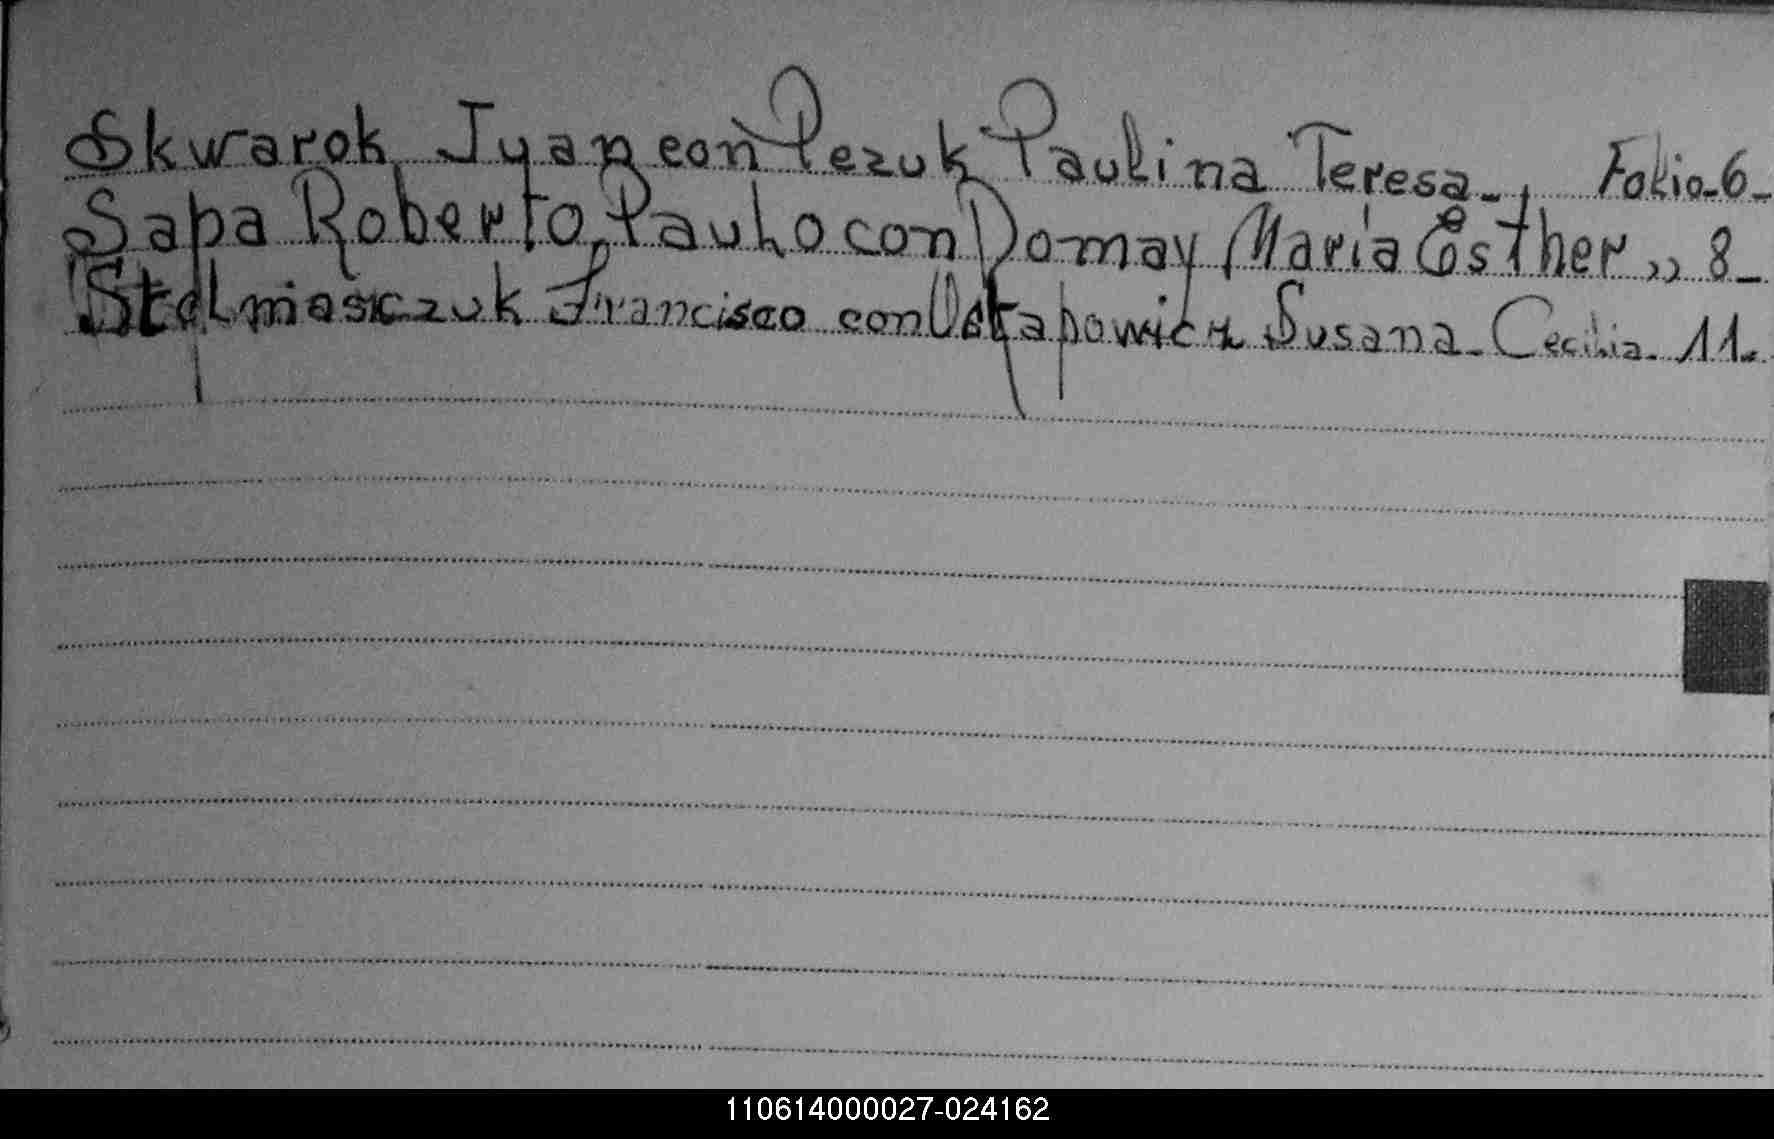 Skwarok Juan con Pezuk Paulina Teresa_, Folio_6_
Sapa Roberto, Paulo con Domay María Esther ,, 8_
Stelmasiczuk Francisco con Ostapowicz Susana_Cecilia_11_
110614000027-024162